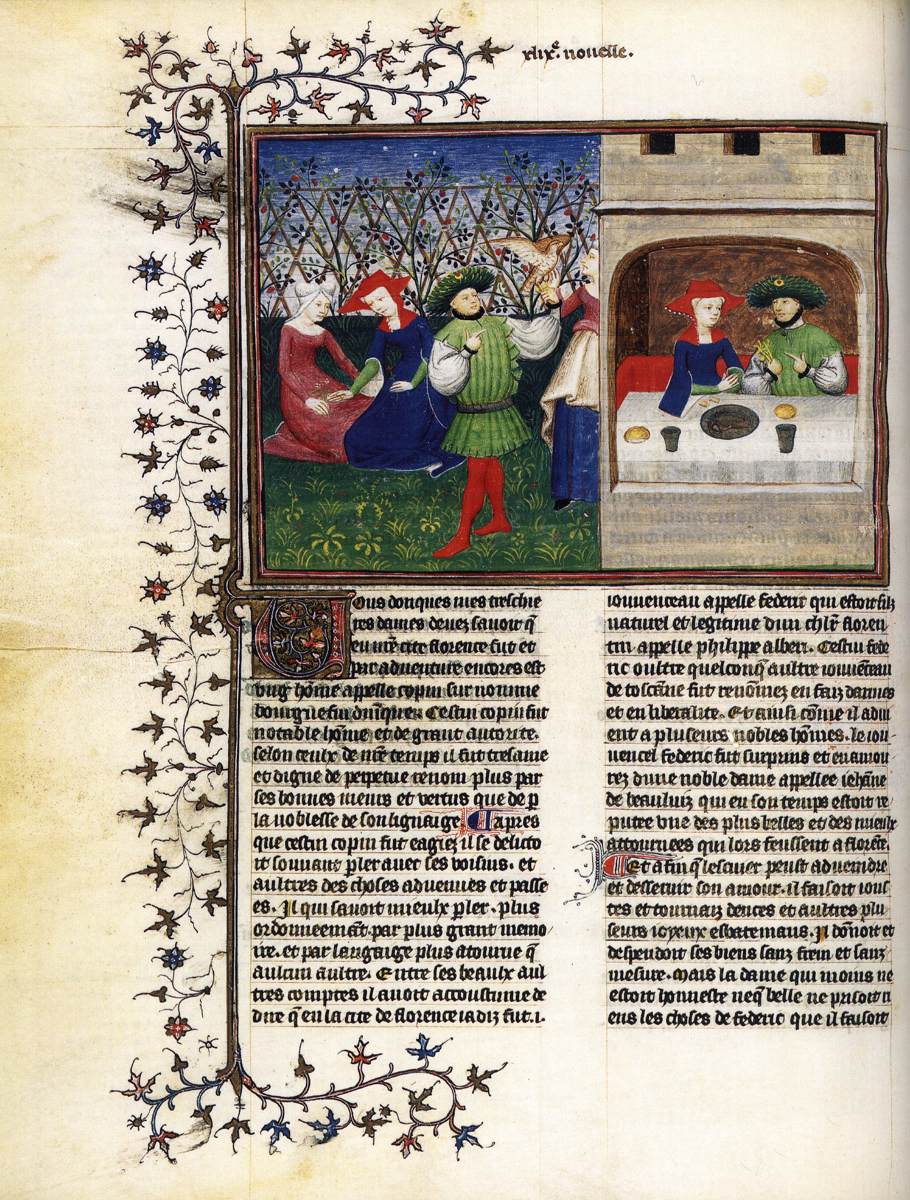 xlixe. nouelle.
Uous donques mes treschie
res dames deuez sauoir q̄
en nr̄e cite florence fut et
par aduenture encores est
vng hōme appelle copin surnomme
bourguefin dn̄iques. Cestui copin fut
notable hōme et de grant autorite.
selon ceulx de nr̄e temps il fut tresame
et digne de perpetue renom plus par
ses bonnes meurs et vertus que de p
la noblesse de son lignaige. Et apres
que cestui copin fut eagiez il se delicto
it souuant p̄ler auec ses voisins. et
aultres des choses aduenues et passe
es. Il qui sauoit mieulx p̄ler. plus
ordonneemāt. par plus grant memo
ire. et par langaige plus atourne q̄
aulcun aultre. Entre ses beaulx aul
tres comptes il auoit accoustume de
dire q̄ en la cite de florence iadiz fut .i.
iouuenceau appelle federic qui estoit filz
naturel et legitime dun chlr̄ floren
tin appelle philippe alberi. Cestui fede
ric oultre quelconq̄ aultre iouuenceau
de toscane fut renōmez en faiz darmes
et en liberalite. Et ainsi cōme il adui
ent a pluseurs nobles hōmes. le iou
uencel federic fut surprins et enamou
rez dune noble dame appellee iehāne
de beauluiz qui en son temps estoit re
putee vne des plus belles et des mieulx
attournees qui lors feussent a florēce.
Et afin q̄ lescuier peust adueindre
et desseruir son amour. il faisoit ious
tes et tournaiz dences et aultres plu
seurs ioyeux esbatemans. Il dōnoit et
despendoit ses biens sanz frein et sanz
mesure. Mais la dame qui moins ne
estoit honneste neq̄ belle ne prisoit ri
ens les choses de federic que il faisoit